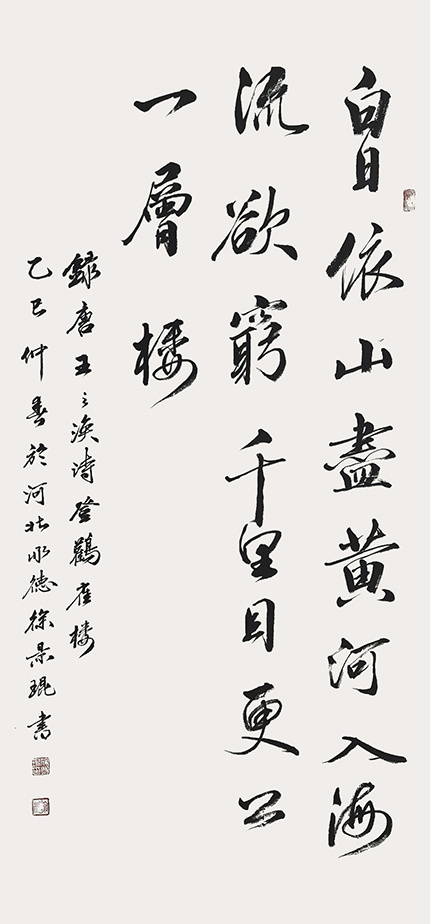 白日依山盡黄河入海
流欲窮千里目更上
一層楼
錄唐王之渙詩登鸛雀楼
乙巳仲春於河北順德徐景琨書